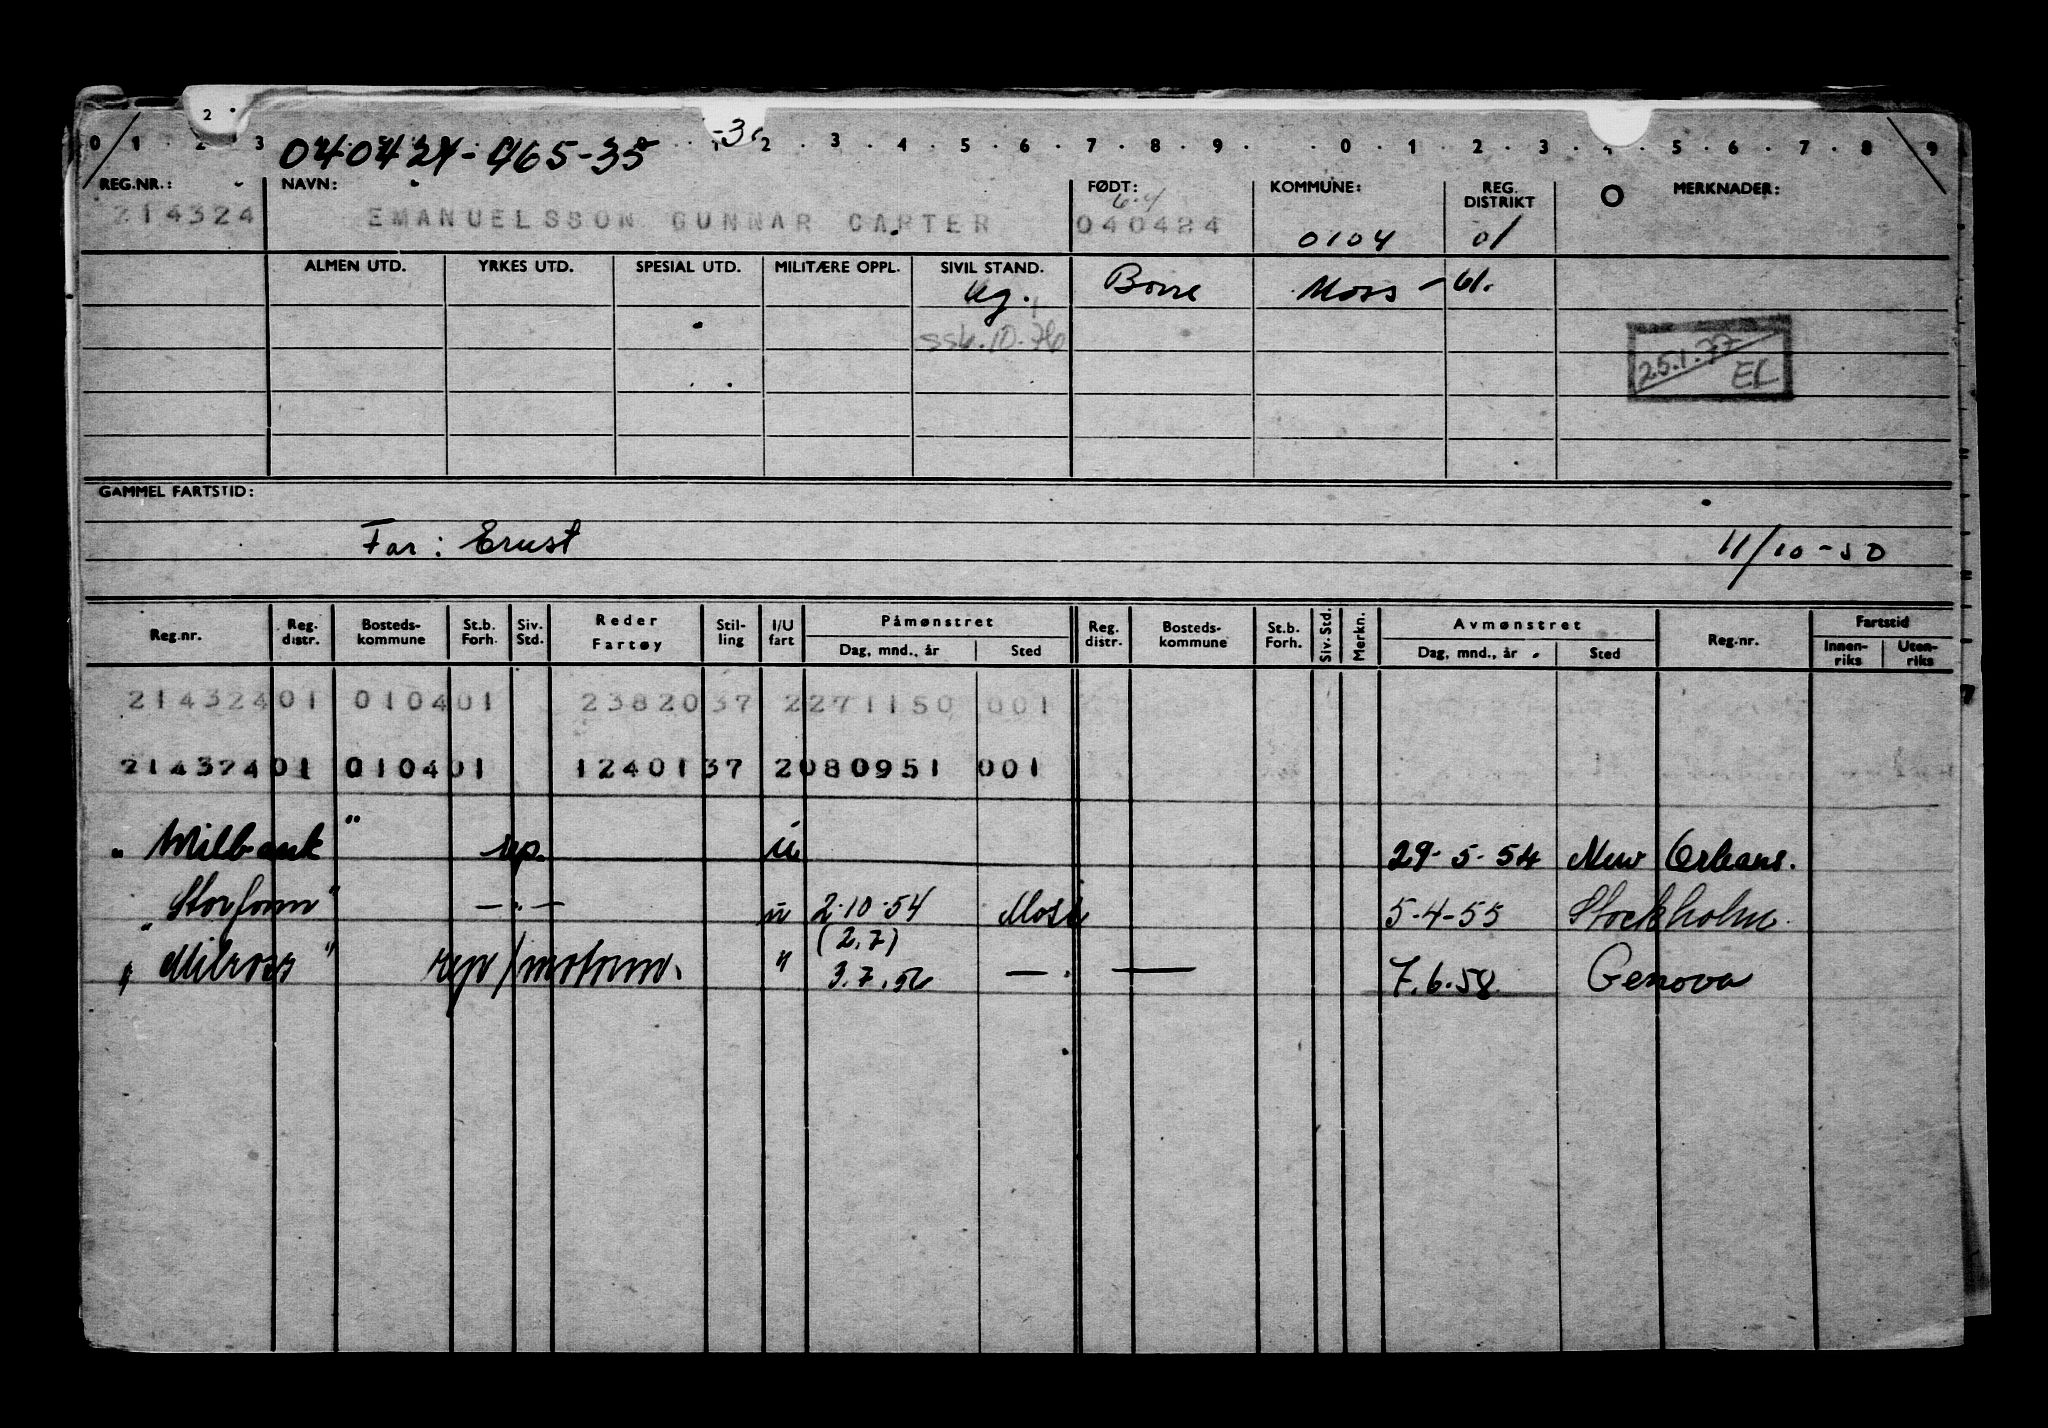 2 ·
0 1 2 3 -3 2 · 3 · 4 · 5 · 6 · 7 · 8 · 9 · · 0 · 1 · 2 · 3 · 4 · 5 · 6 · 7 · 8 9
040424-465-35
REG.NR.: NAVN: FØDT: KOMMUNE: REG. DISTRIKT O MERKNADER:
6.4
214324 EMANUELSSON GUNNAR CARTER 040424 0104 01
ALMEN UTD. YRKES UTD. SPESIAL UTD. MILITÆRE OPPL. SIVIL STAND. Borre Moss - 61.
Ug.
ssb.10.76
25.1.77
EL
GAMMEL FARTSTID:
Far: Ernst 11/10-50
Reg.nr. Reg. distr. Bosteds-kommune St.b. Forh. Siv. Std. Reder Fartøy Stil-ling I/U fart Påmønstret Reg. distr. Bosteds-kommune St.b. Forh. Siv. Std. Merkn. Avmønstret Reg.nr. Fartstid
Dag, mnd., år Sted Dag, mnd., år Sted Innen-riks Uten-riks
21432401 010401 2382037 2271150 001
21432401 010401 1240137 2080951 001
"Milbank" rep. u 29-5-54 New Orleans.
"Storfonn" — " — u 2.10.54 Moss 5-4-55 Stockholm.
(2.7)
"Milross" rep/motorm. " 3.7.56 — . — 7.6.58 Genova